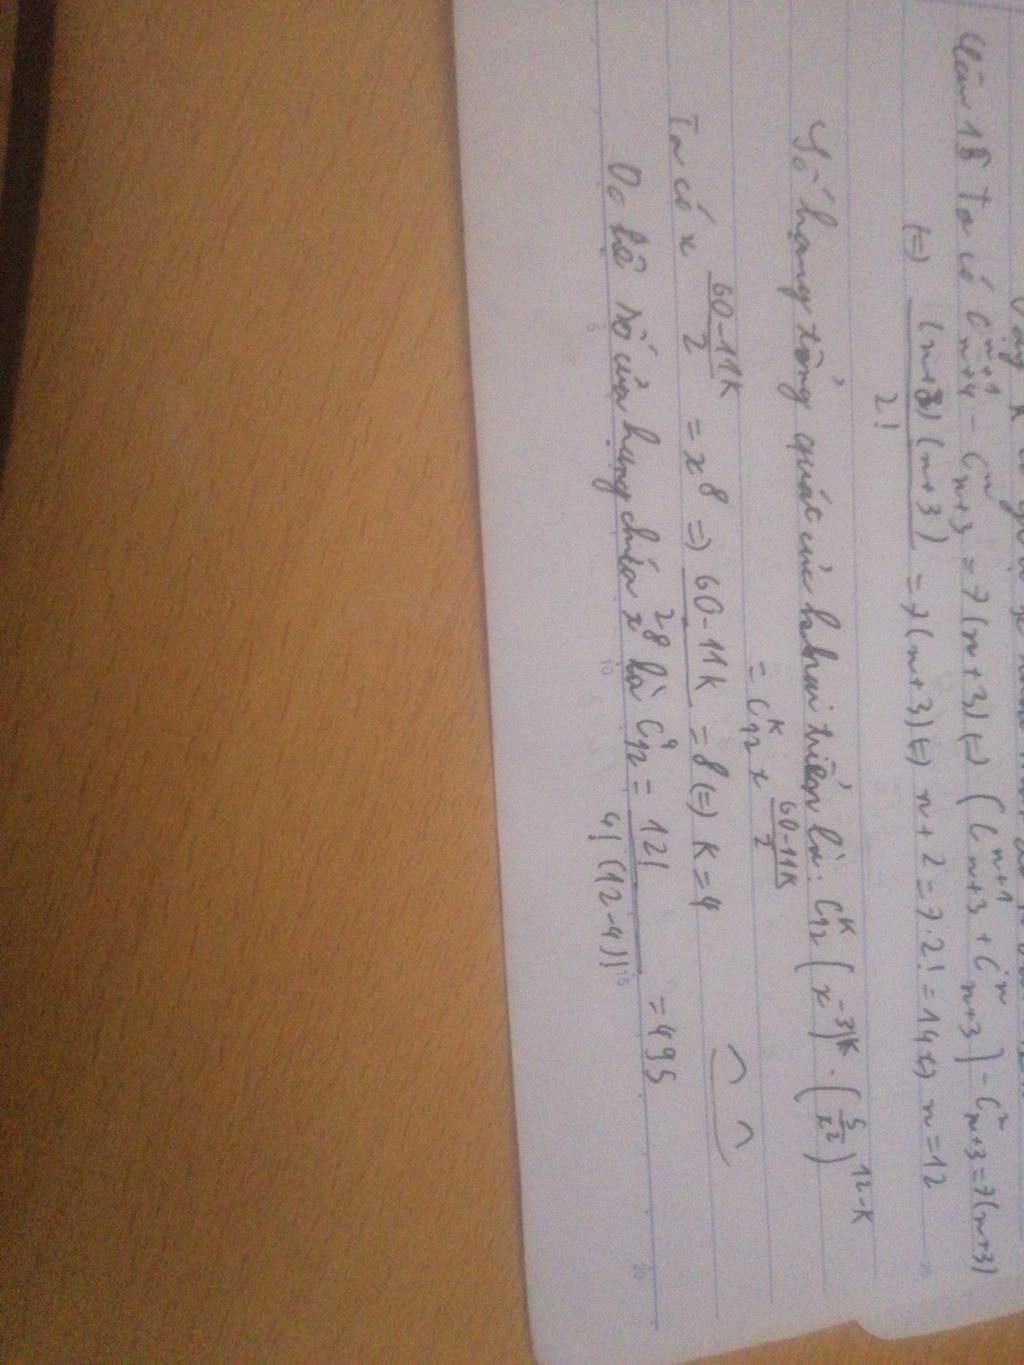 Vậy
Câu 18 Ta có C_{n+4}^{n+1} - C_{n+3}^{n} = 7(n+3) (=) (C_{n+3}^{n+1} + C_{n+3}^{n}) - C_{n+3}^{n} = 7(n+3)
(=) \frac{(n+2)(n+3)}{2!} = 7(n+3) (=) n+2 = 7.2! = 14 (=) n = 12
Số hạng tổng quát của khai triển là: C_{12}^{k} (x^{-3})^{k} . (x^{\frac{5}{2}})^{12-k}
= C_{12}^{k} x^{\frac{60-11k}{2}}
Ta có x^{\frac{60-11k}{2}} = x^{8} => \frac{60-11k}{2} = 8 (=) k = 4
Do hệ số của hạng chứa x^{8} là C_{12}^{4} = \frac{12!}{4!(12-4)!} = 495